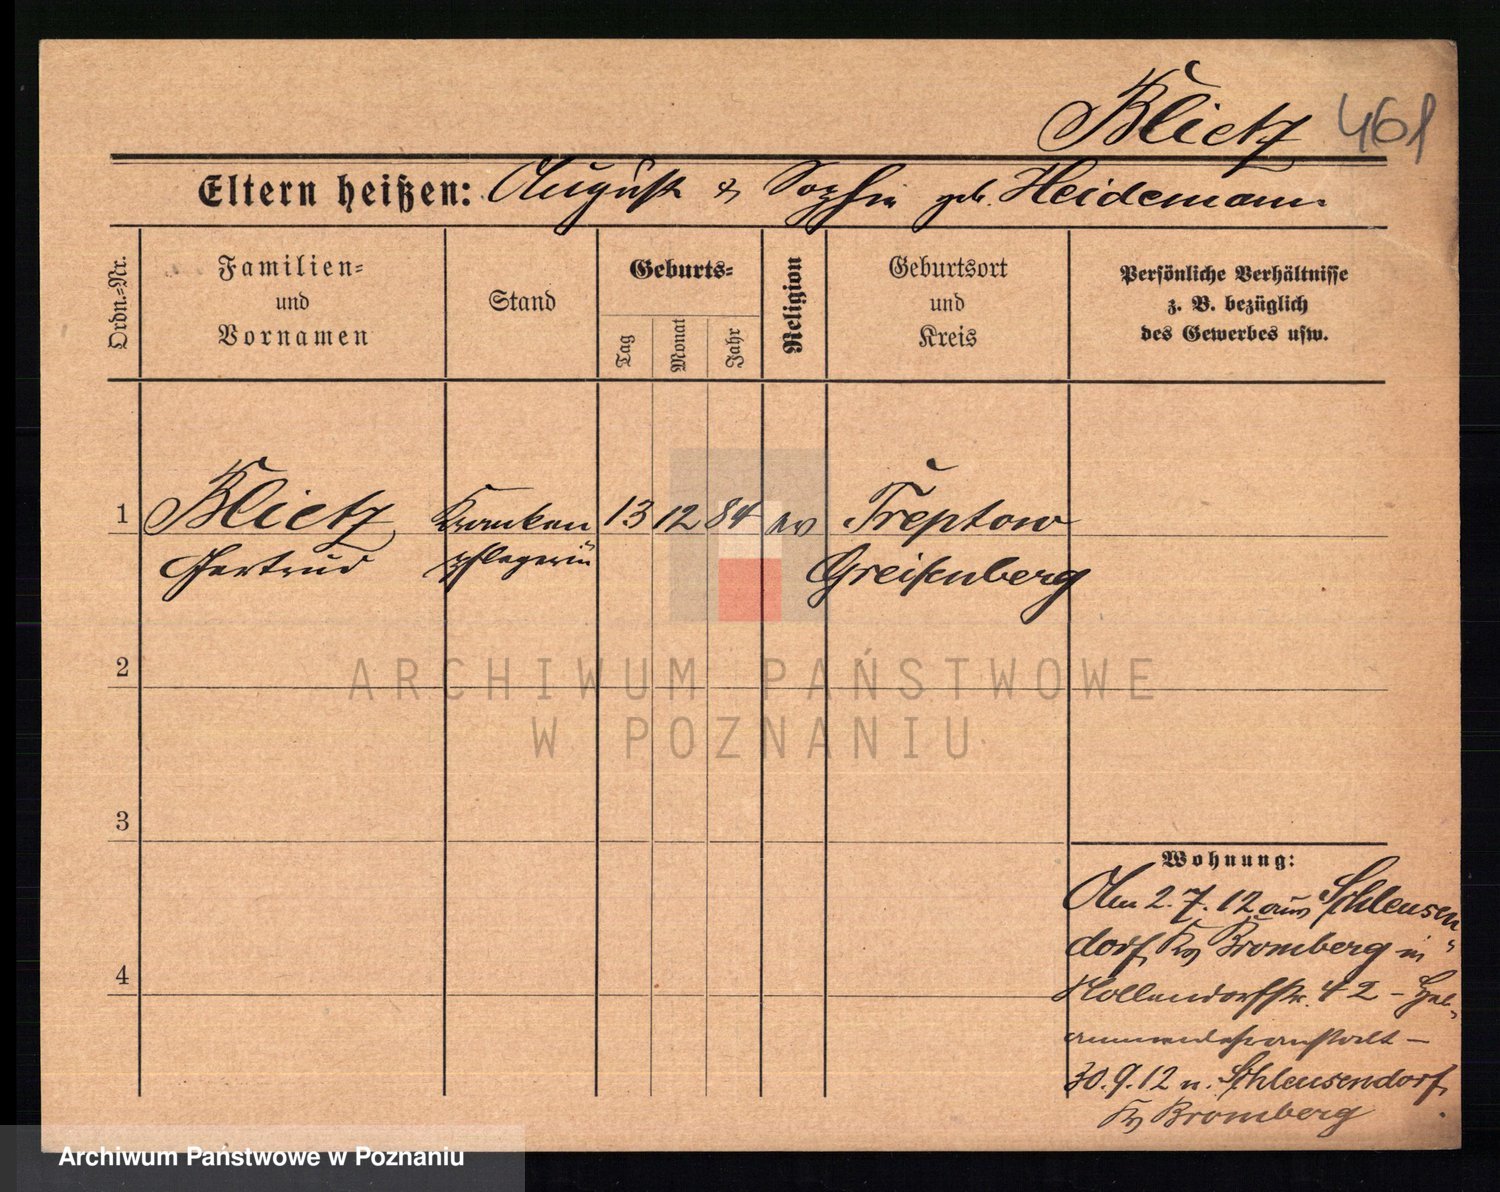 Blietz 461
Eltern heißen: August & Sophie geb. Heidemann
Ordn.=Nr.
Familien=
und
Vornamen
Stand
Geburts=
Tag
Monat
Jahr
Religion
Geburtsort
und
Kreis
Persönliche Verhältnisse
z. B. bezüglich
des Gewerbes usw.
1 Blietz Kranken 13 12 84 ev Treptow
Gertrud pflegerin Greifenberg
2
3
4
Wohnung:
Am 2.7.12 aus Schleusen
dorf, Kr Bromberg in
Nollendorfstr. 42 – Heb-
ammenlehranstalt –
30.9.12 n. Schleusendorf,
Kr Bromberg
ARCHIWUM PAŃSTWOWE
W POZNANIU
Archiwum Państwowe w Poznaniu